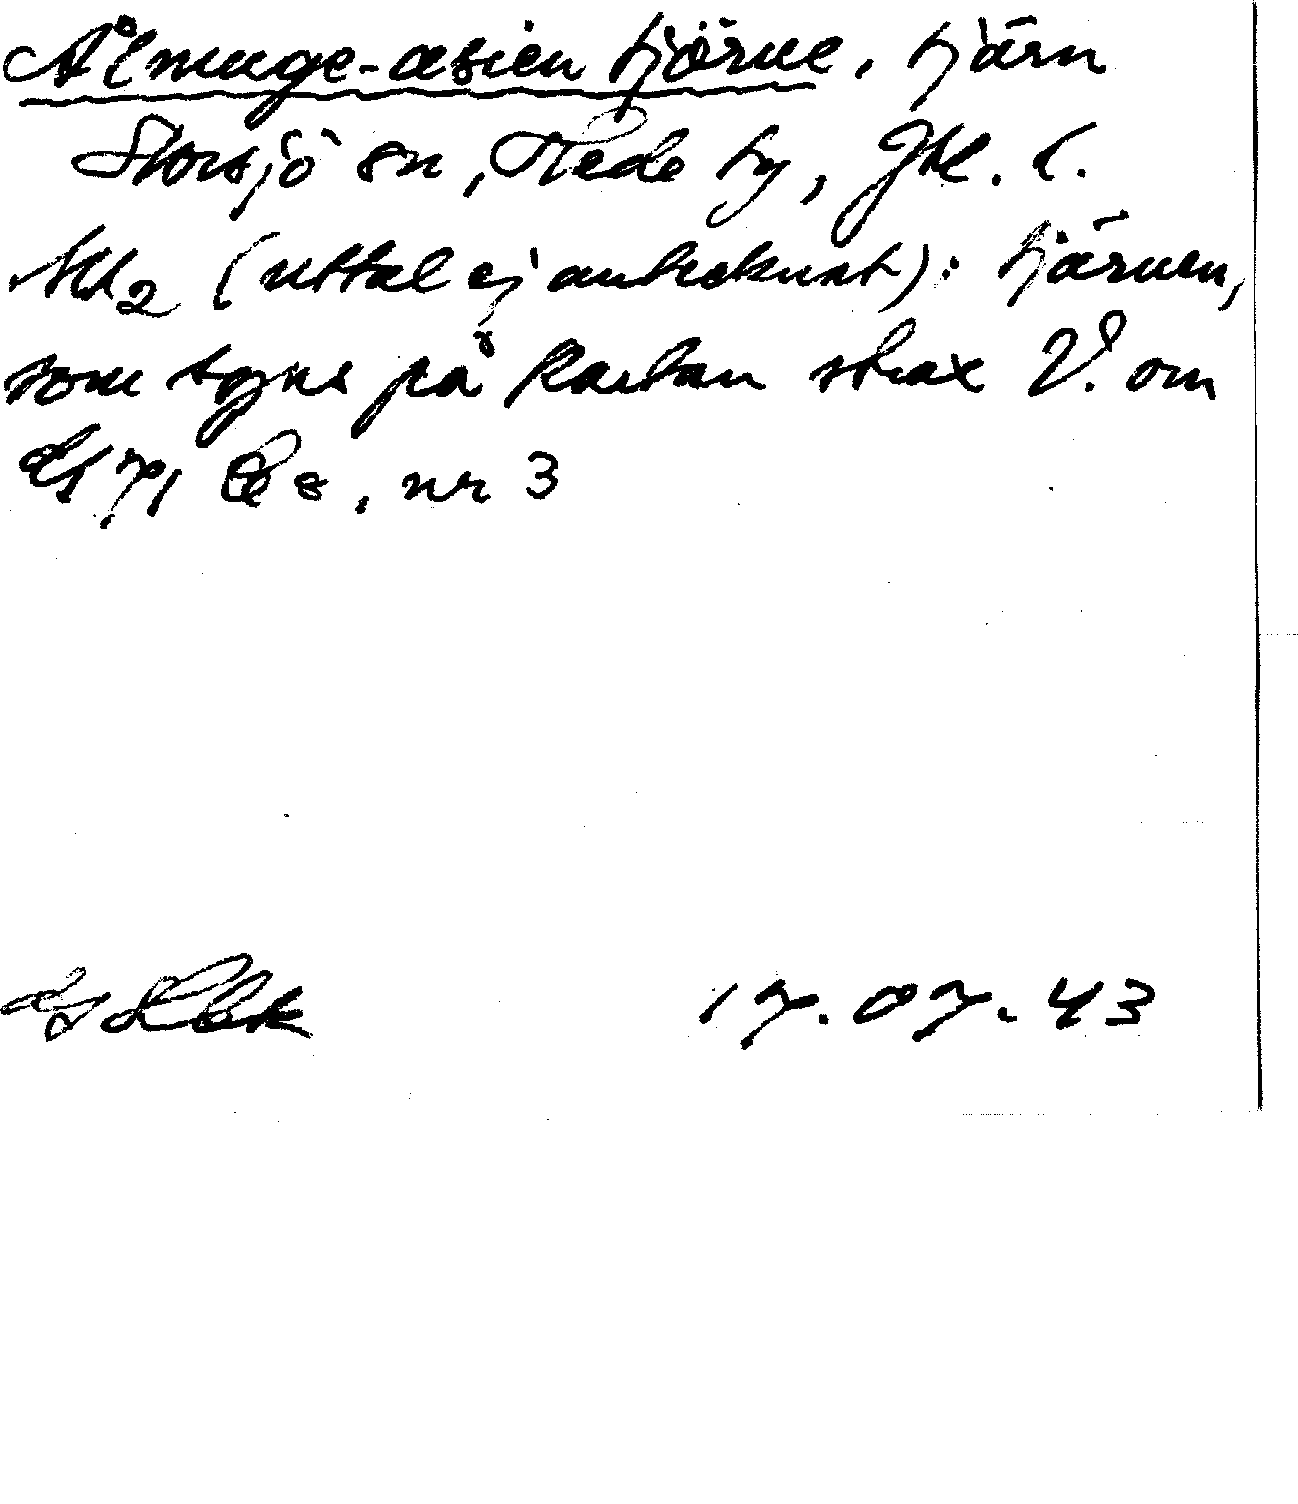 Ålmuge-æsien tjörne, tjärn
Storsjö sn, Flede by, Jtl. l.
M2 (uttal ej antecknat): tjärnen,
som synes på kartan strax V. om
nr 3
17.07.43